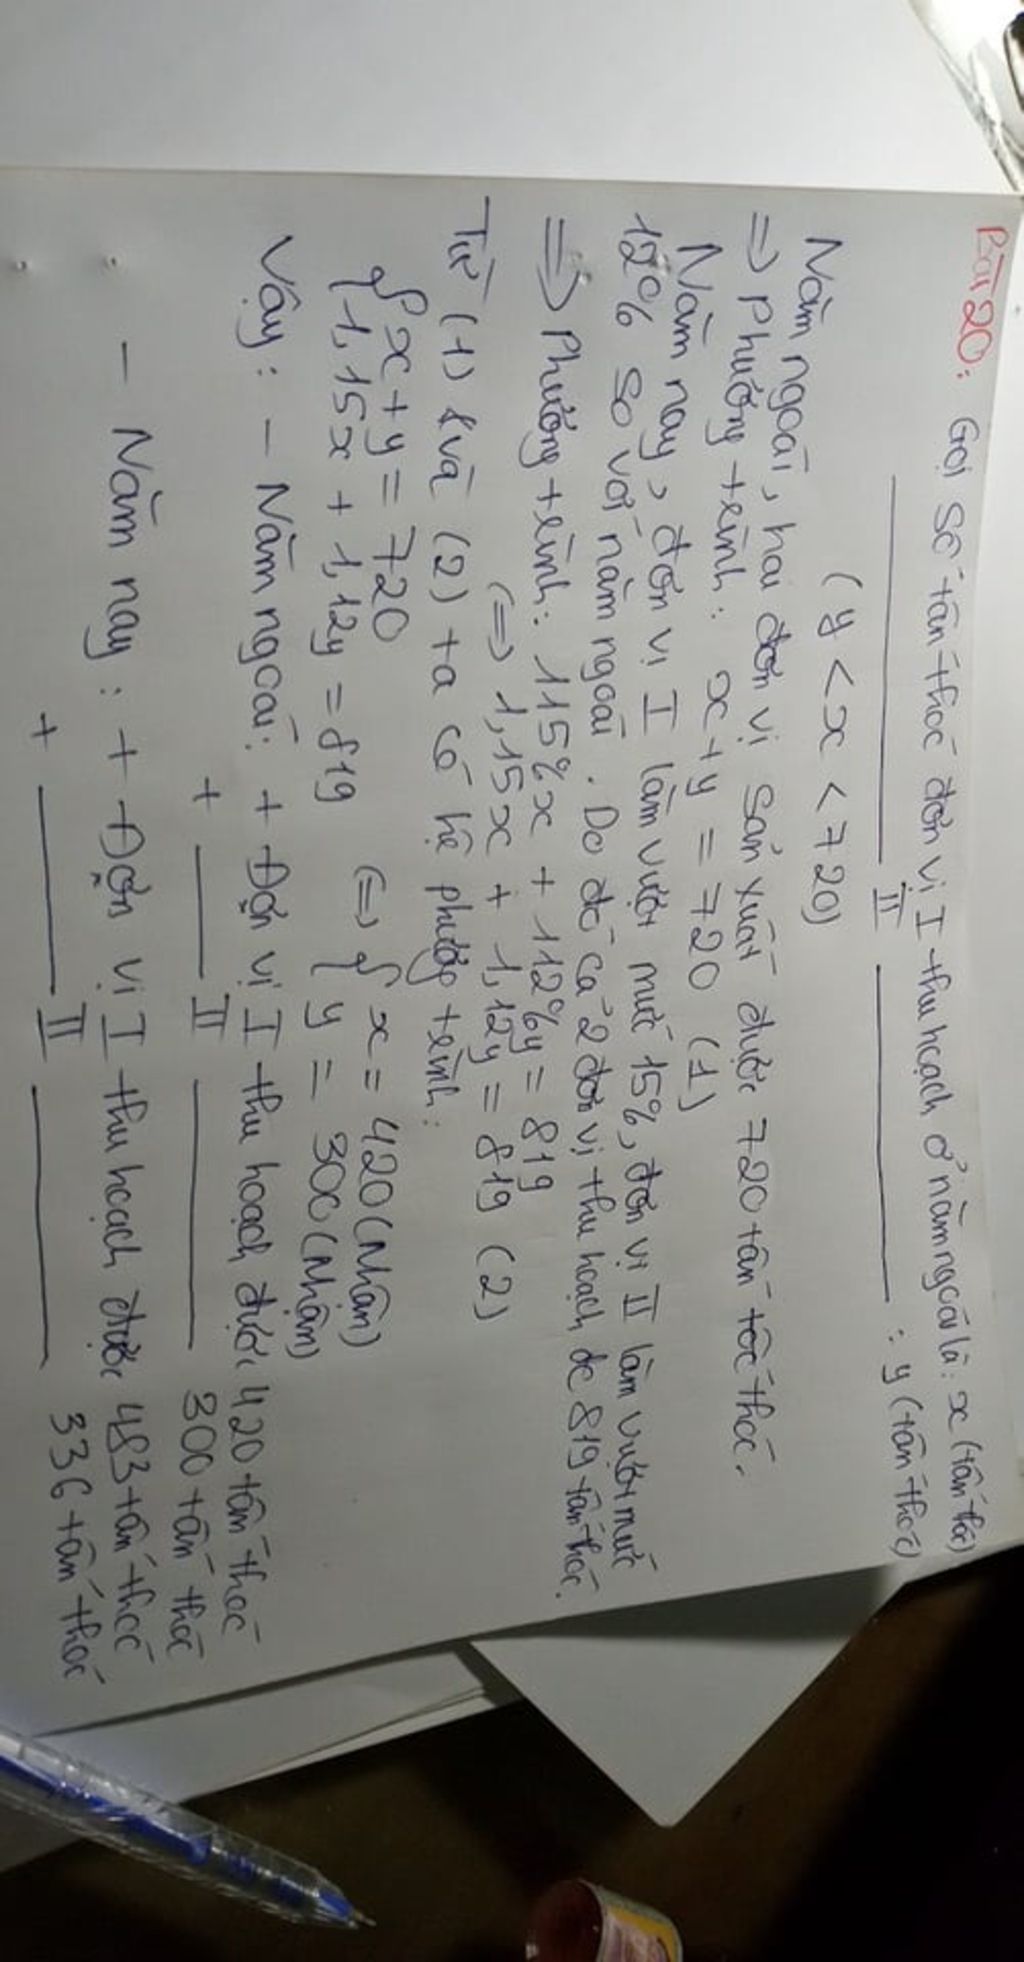 Bài 20: Gọi số tấn thóc đơn vị I thu hoạch ở năm ngoái là: x (tấn thóc)
II : y (tấn thóc)
(y < x < 720)
Năm ngoái, hai đơn vị sản xuất được 720 tấn tóc thóc.
=> Phương trình: x + y = 720 (1)
Năm nay, đơn vị I làm vượt mức 15%, đơn vị II làm vượt mức
12% so với năm ngoái. Do đó cả 2 đơn vị thu hoạch đc 819 tấn thóc.
=> Phương trình: 115%x + 112%y = 819
<=> 1,15x + 1,12y = 819 (2)
Từ (1) và (2) ta có hệ phương trình:
{ x + y = 720 <=> { x = 420 (Nhận)
{ 1,15x + 1,12y = 819 { y = 300 (Nhận)
Vậy: - Năm ngoái: + Đơn vị I thu hoạch được 420 tấn thóc
+ II 300 tấn thóc
- Năm nay: + Đơn vị I thu hoạch được 483 tấn thóc
+ II 336 tấn thóc